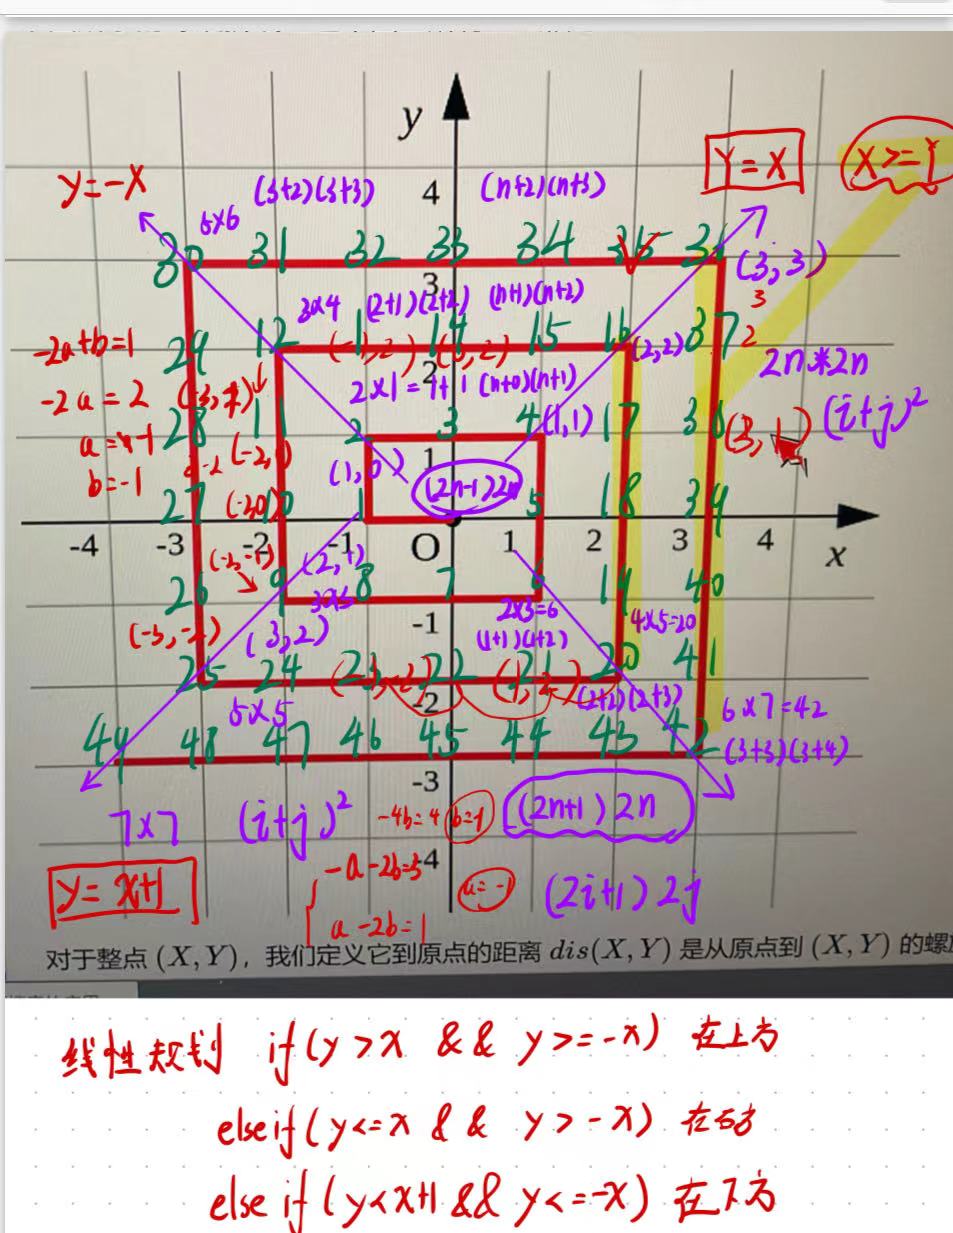 y
y=-x
(3+2)(3+3)
4
(n+2)(n+3)
Y=X
X>=Y
5x6
30 31 32 33 34 35 36
(3,3)
3
3x4 (2+1)(2+2) (n+1)(n+2)
3
-2a+b=1
29 12 14 15 16 37
2
(2,2)
2n*2n
-2a=2
2
2x1=1+1 (n+0)(n+1)
28 11 2 3 4 (1,1) 17 38
(3,1)
(i+j)²
b=-1
1
(1,0)
(2n-1)2n
27 10 1 5 18 39
-4 -3 -2 -1 O 1 2 3 4 x
26 9 8 7 6 19 40
(2,1)
3x3
2x3=6
4x5=20
(-3,-2)
(3,2)
-1
(1+1)(1+2)
25 24 23 22 21 20 41
-2
(2+2)(2+3)
5x5
6x7=42
49 48 47 46 45 44 43 42
(3+3)(3+4)
-3
7x7
(i+j)²
-4b=4
b=-1
(2n+1)2n
y=x+1
-a-2b=3
-4
a=-1
(2i+1)2j
a-2b=1
对于整点 (X, Y)，我们定义它到原点的距离 dis(X, Y) 是从原点到 (X, Y) 的螺
线性规划 if(y>x && y>=-x) 在上方
else if(y<=x && y>-x) 在右方
else if(y<x+1 && y<=-x) 在下方